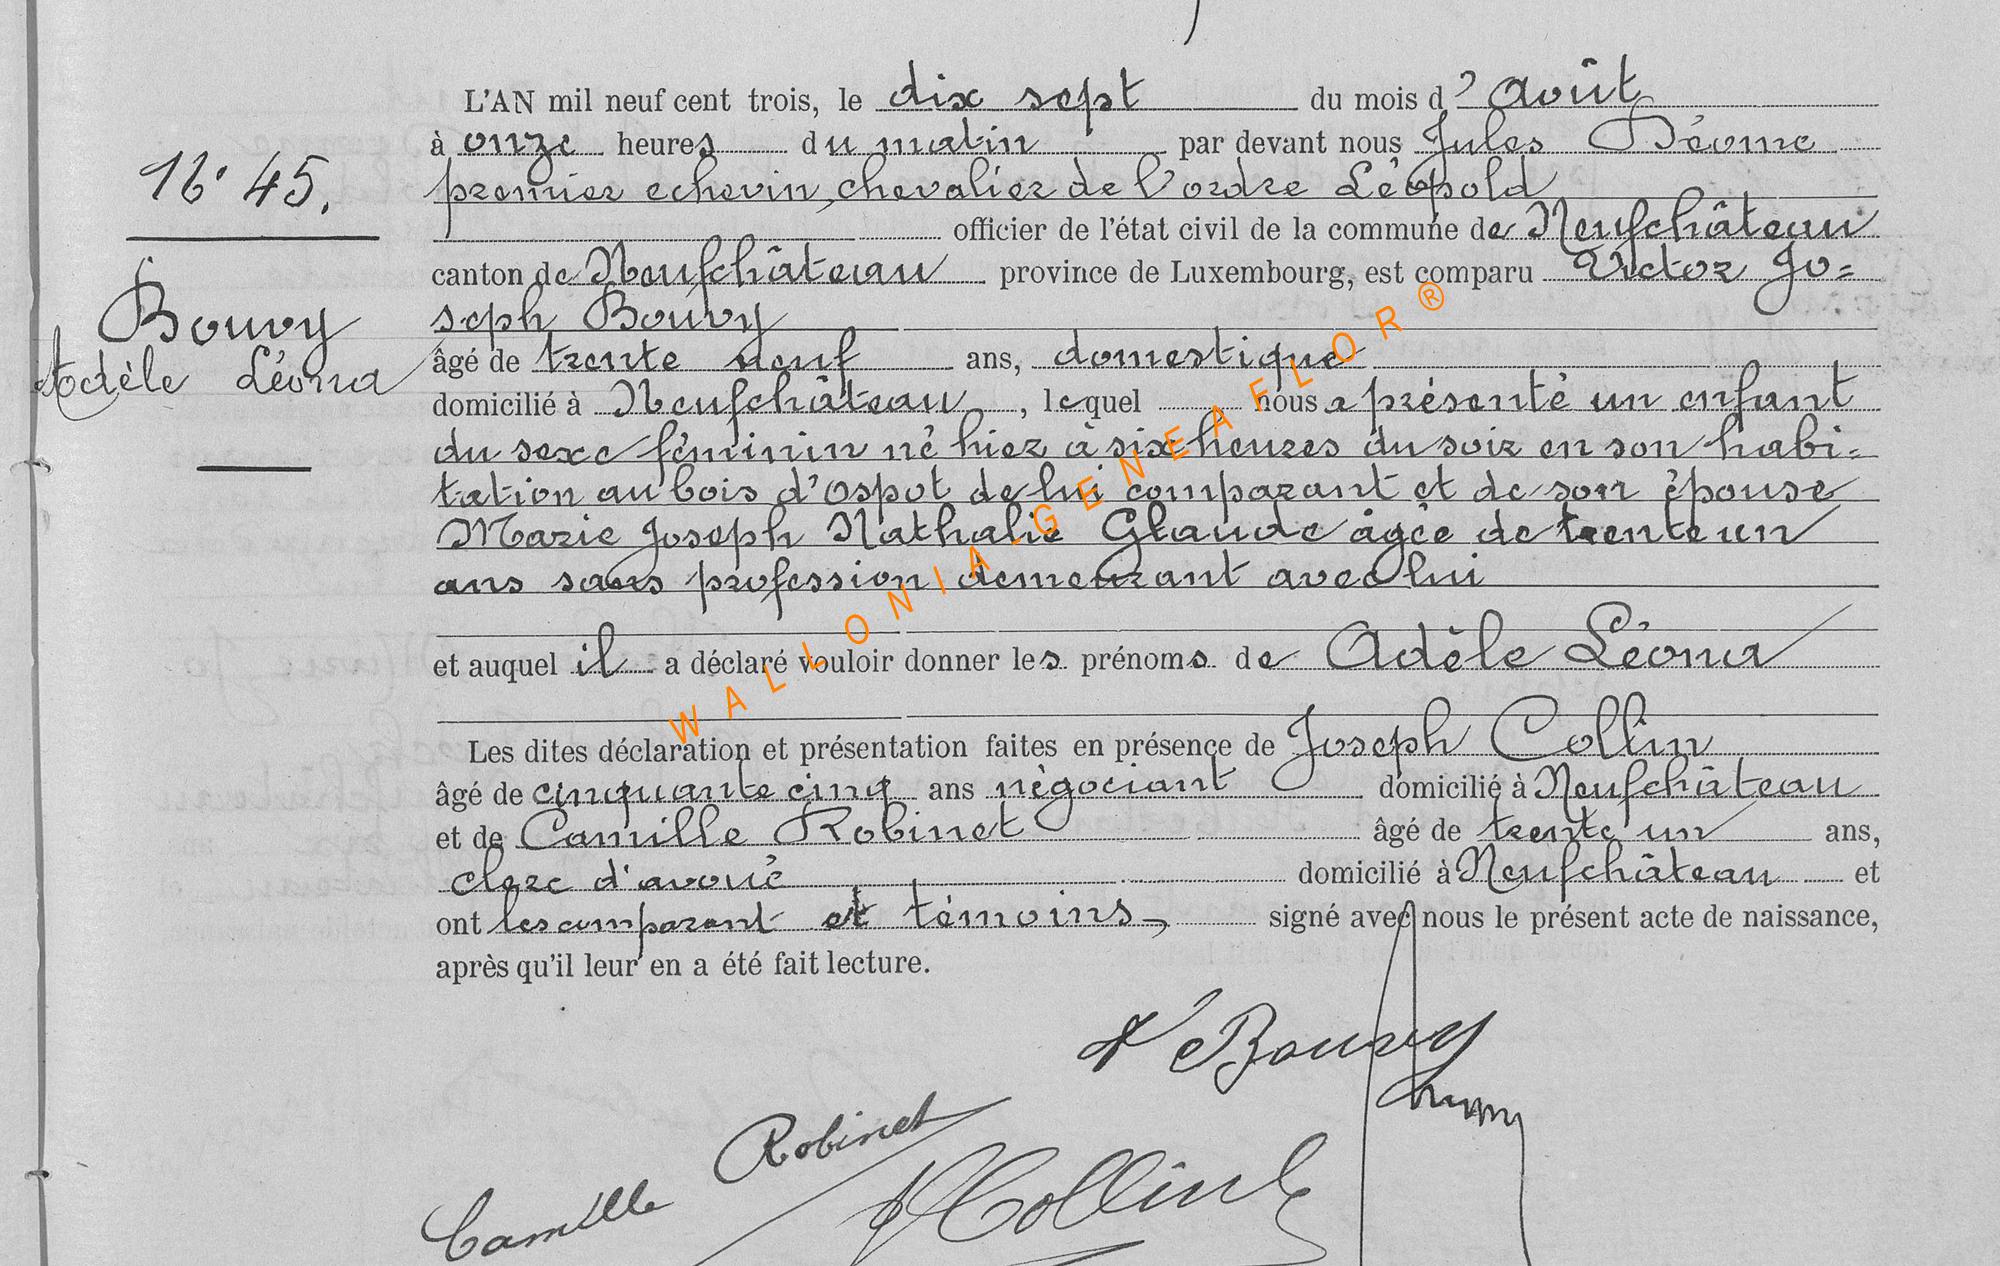 L'AN mil neuf cent trois, le dix sept du mois d'Août
à onze heures du matin par devant nous Jules
premier echevin, chevalier de l'ordre Léopold
officier de l'état civil de la commune de Neufchâteau
canton de Neufchâteau province de Luxembourg, est comparu Victor Jo=
seph Bouvy
âgé de trente neuf ans, domestique
domicilié à Neufchâteau, lequel nous a présenté un enfant
du sexe féminin né hier à six heures du soir en son habi=
tation au bois d'Ospot de lui comparant et de son épouse
Marie Joseph Nathalie Glaude âgée de trente un
ans sans profession demeurant avec lui
et auquel il a déclaré vouloir donner les prénoms de Adèle Léona
Les dites déclaration et présentation faites en présence de Joseph Collin
âgé de cinquante cinq ans négociant domicilié à Neufchâteau
et de Camille Robinet âgé de trente un ans,
clerc d'avoué domicilié à Neufchâteau et
ont les comparant et témoins, signé avec nous le présent acte de naissance,
après qu'il leur en a été fait lecture.
N° 45.
Bouvy
Adèle Léona
V Bouvy
Camille Robinet
J Collin
WALLONIA GENEAFLOR ®